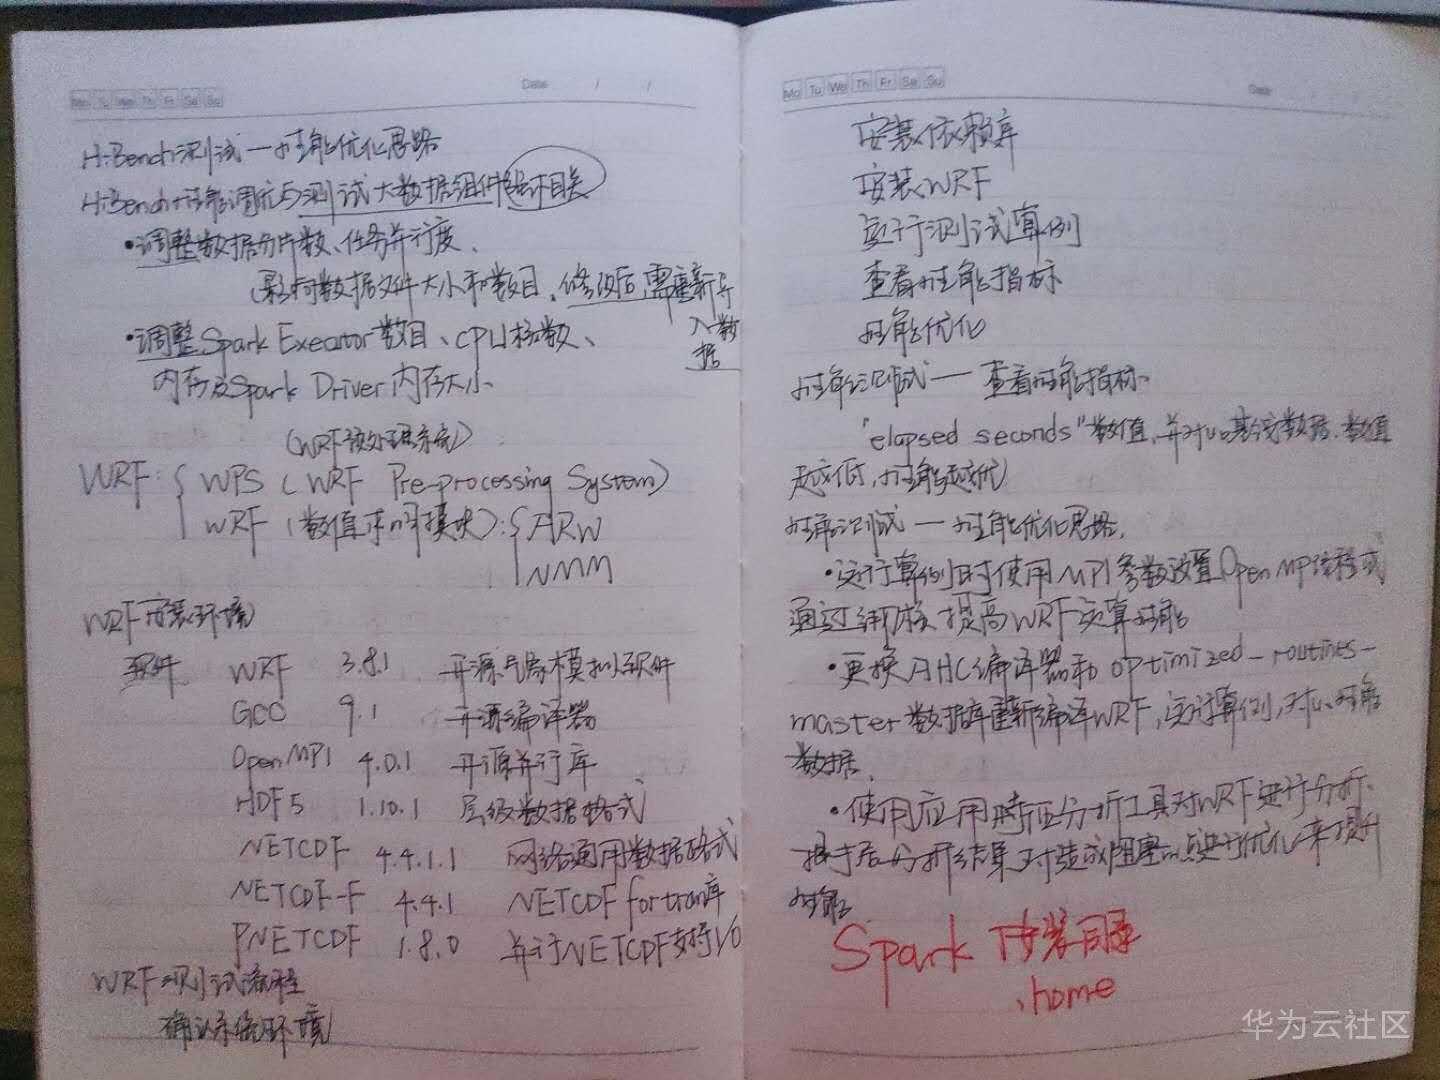 Mo Tu We Th Fr Sa Su Date / /
HiBench测试—性能优化思路
HiBench性能调优与测试大数据组件强相关
•调整数据分片数、任务并行度、
(影响数据文件大小和数目、修改后,需重新导
入数
据
•调整Spark Executor数目、CPU核数、
内存及Spark Driver内存大小、
(WRF预处理系统)
WRF: { WPS (WRF Pre-processing System)
WRF (数值求解模块): { ARW
NMM
WRF安装环境
软件 WRF 3.8.1 开源气象模拟软件
GCC 9.1 开源编译器
OpenMPI 4.0.1 开源并行库
HDF5 1.10.1 层级数据格式
NETCDF 4.4.1.1 网络通用数据格式
NETCDF-F 4.4.1 NETCDF fortran库
PNETCDF 1.8.0 并行NETCDF支持I/O
WRF测试流程
确认系统环境
Mo Tu We Th Fr Sa Su Date
安装依赖库
安装WRF
运行测试算例
查看性能指标
性能优化
性能测试—查看性能指标、
"elapsed seconds"数值,并对比基线数据、数值
越低,性能越优
性能测试—性能优化思路,
•运行算例时使用MPI参数设置OpenMP线程或
通过绑核提高WRF运算性能
•更换AHC编译器和optimized-routines-
master数据库重新编译WRF,运行算例,对比性能
数据、
•使用应用瓶颈分析工具对WRF进行分析、
根据分析结果对造成阻塞的点进行优化来提升
性能
Spark 安装目录
.home
华为云社区